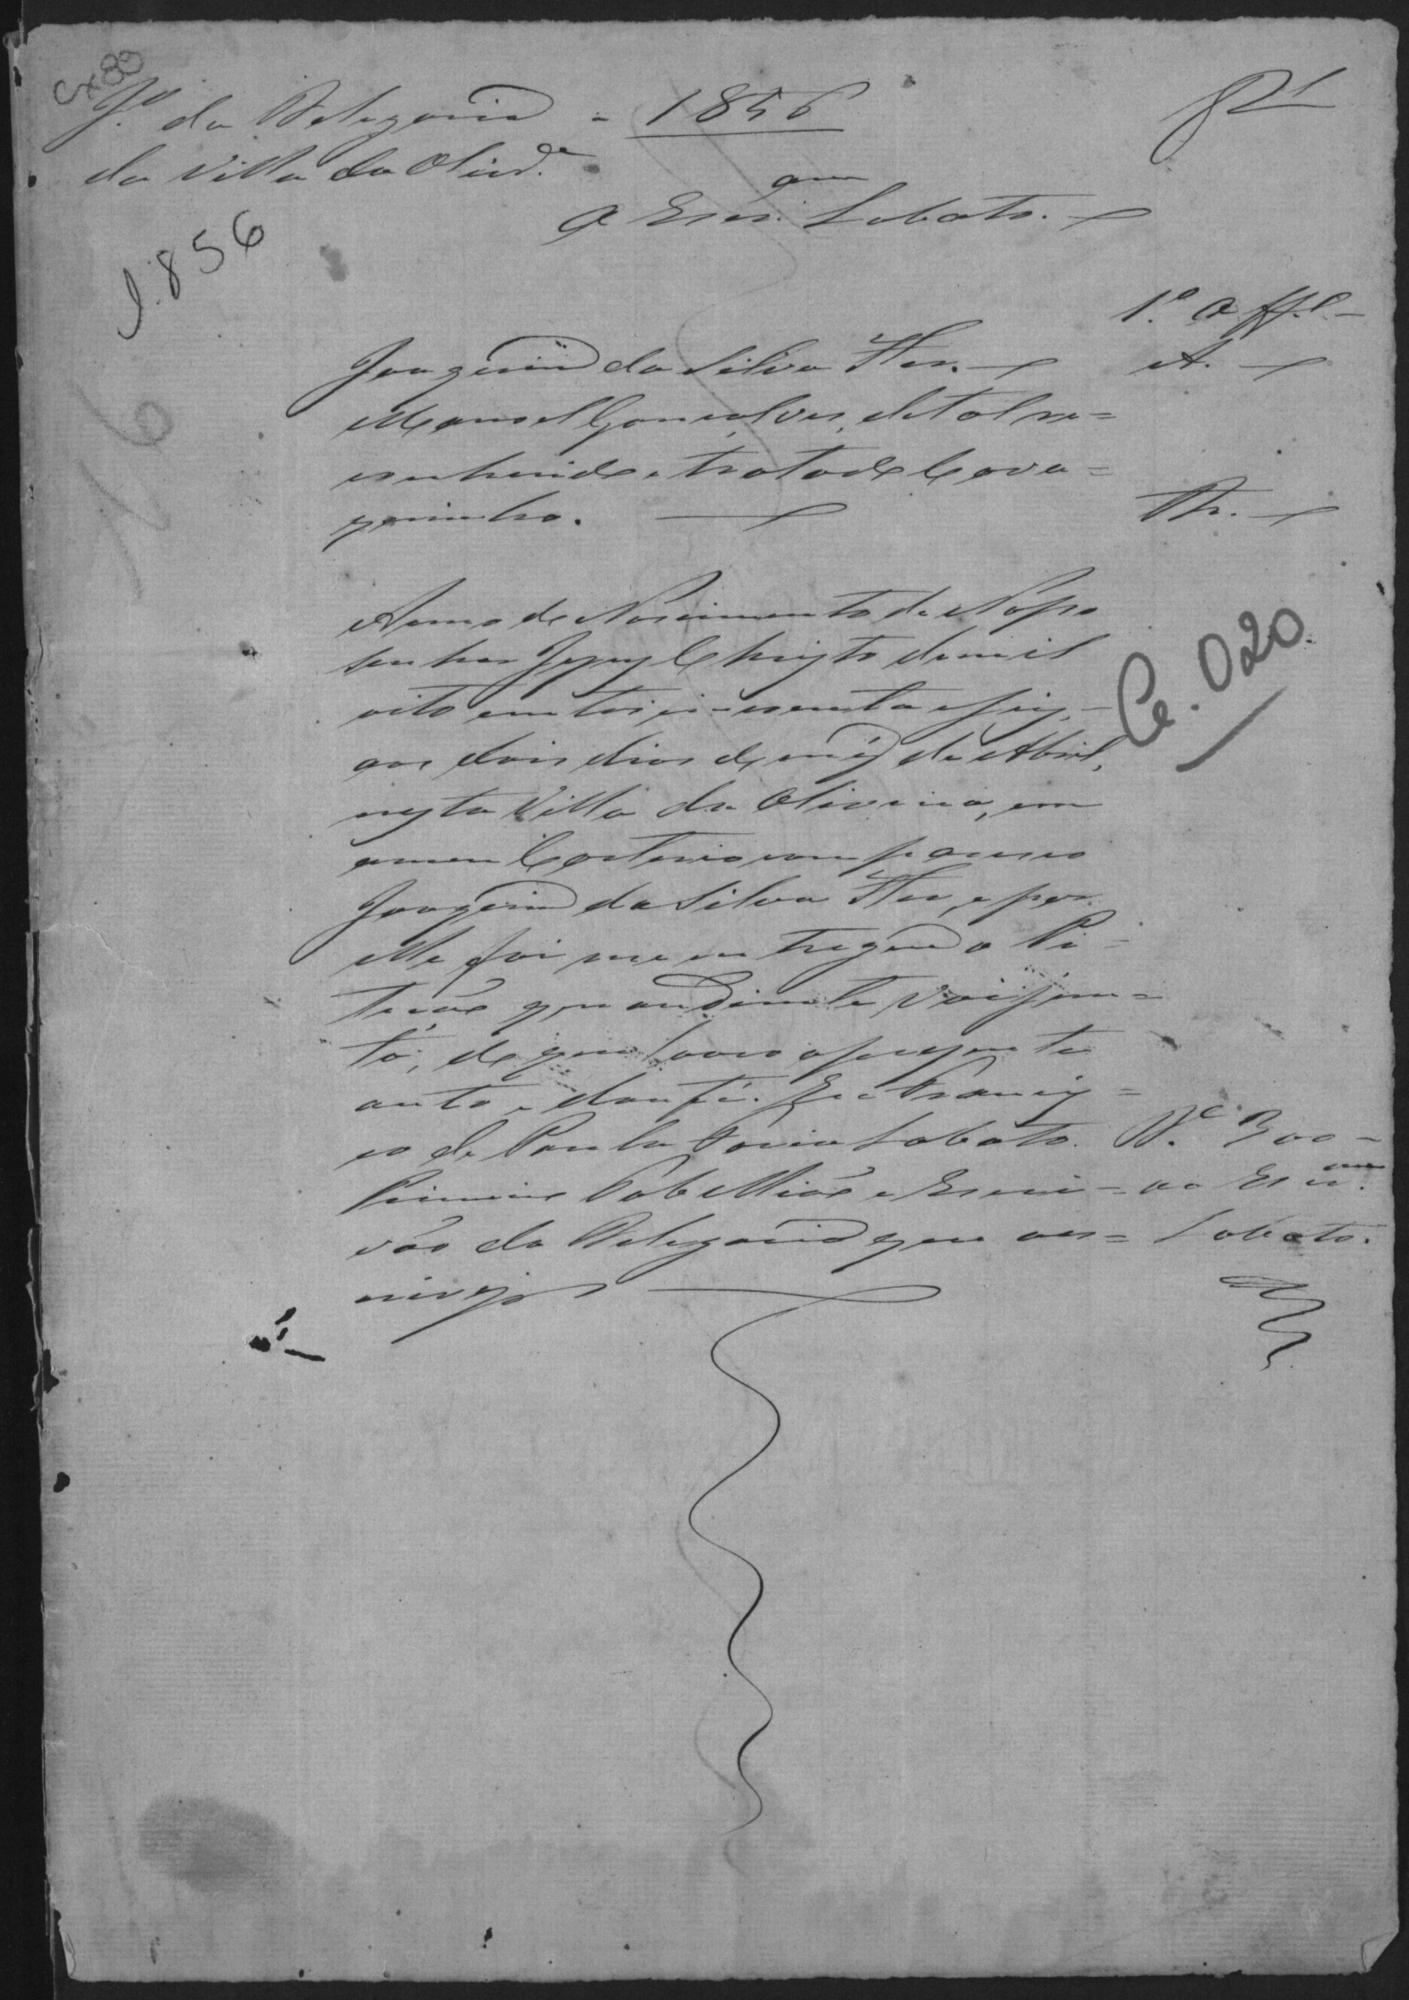 Cx 83
J.º da Delegacia - 1856
da Villa da Olivr.ª
O Escr.am Lobato.
1856
1.º Off.e
Joaquim da Silva Flor. A.
Manoel Gonçalves, de tal co=
nhecido e tratado
R.
16
Anno do Nascimento de Nosso
Senhor Jezus Christo de mil
oito centos e cincoenta e seiz,
aos dois dias do mêz de Abril,
nesta Villa da Oliveira, em
o meu Cartorio compareceo
Joaquim da Silva Flor, e por
elle foi me entregue a Pi-
tição que adiente vai jun=
ta, de que lavro o prezente
auto, e dou fé. Eu Francis=
co de Paula Lobato.
Primeiro Tabellião e Escri=
vão da Delegacia que es=
crevy
Ce. 020
D.e
ao Escr.am
Lobato.